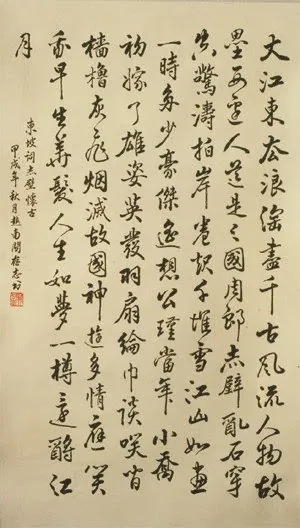 大江東去浪淘盡千古風流人物故
壘西邊人道是三國周郎赤壁亂石穿
空驚濤拍岸卷起千堆雪江山如畫
一時多少豪傑遙想公瑾當年小喬
初嫁了雄姿英發羽扇綸巾談笑間
檣櫓灰飛烟滅故國神遊多情應笑
我早生華髮人生如夢一樽還酹江
月
東坡詞赤壁懷古
甲戌年秋月